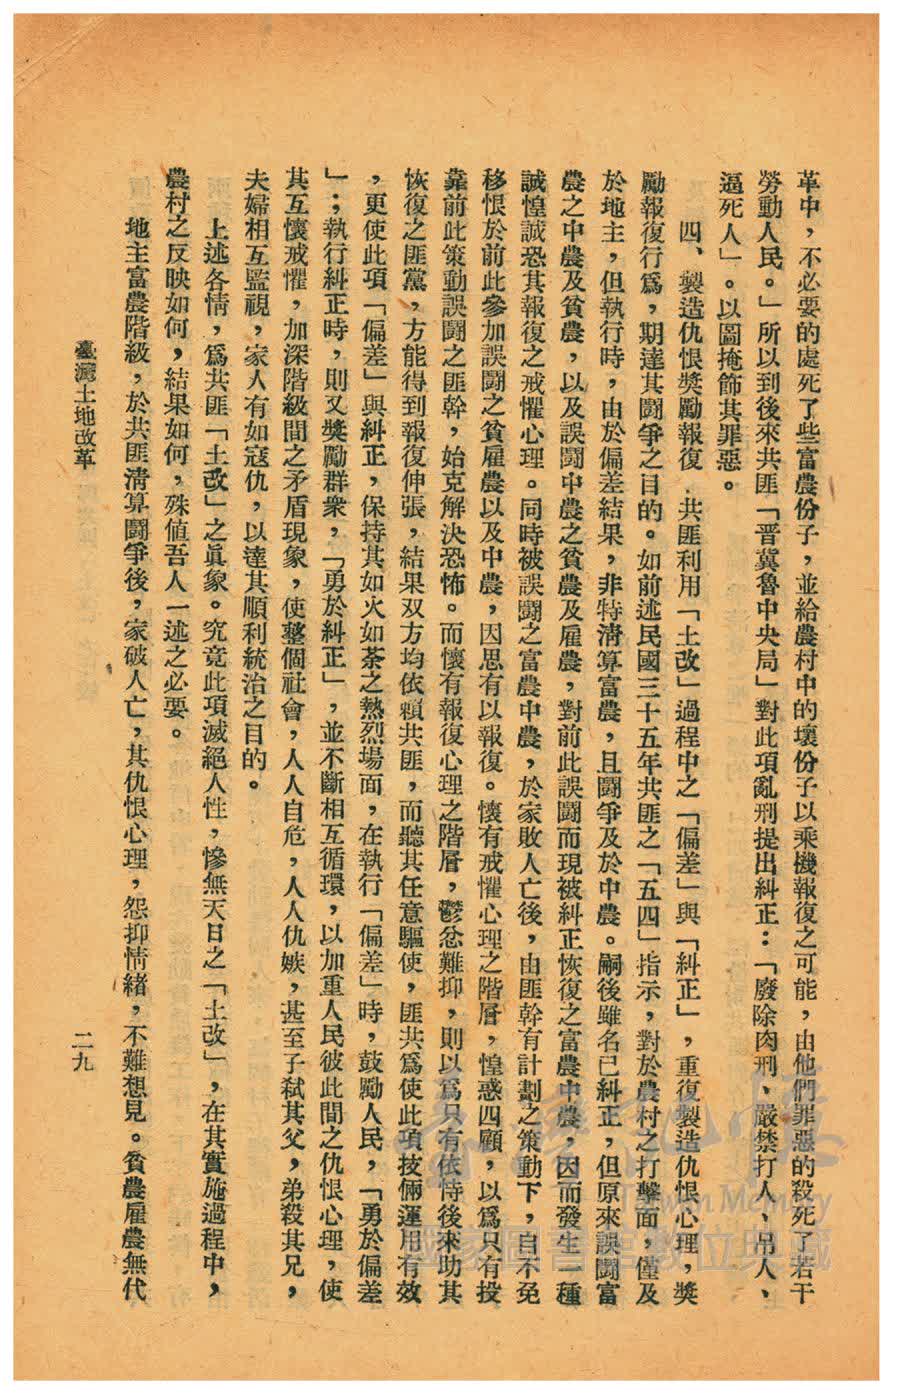 革中，不必要的處死了些富農份子，並給農村中的壞份子以乘機報復之可能，由他們罪惡的殺死了若干
勞動人民。」所以到後來共匪「晋冀魯中央局」對此項亂刑提出糾正：「廢除肉刑、嚴禁打人、吊人、
逼死人」。以圖掩飾其罪惡。
四、製造仇恨獎勵報復　共匪利用「土改」過程中之「偏差」與「糾正」，重復製造仇恨心理，獎
勵報復行爲，期達其鬪爭之目的。如前述民國三十五年共匪之「五四」指示，對於農村之打擊面，僅及
於地主，但執行時，由於偏差結果，非特清算富農，且鬪爭及於中農。嗣後雖名已糾正，但原來誤鬪富
農之中農及貧農，以及誤鬪中農之貧農及雇農，對前此誤鬪而現被糾正恢復之富農中農，因而發生一種
誠惶誠恐其報復之戒懼心理。同時被誤鬪之富農中農，於家敗人亡後，由匪幹有計劃之策動下，自不免
移恨於前此參加誤鬪之貧雇農以及中農，因思有以報復。懷有戒懼心理之階層，惶惑四顧，以爲只有投
靠前此策動誤鬪之匪幹，始克解決恐怖。而懷有報復心理之階層，鬱忿難抑，則以爲只有依恃後來助其
恢復之匪黨，方能得到報復伸張，結果双方均依賴共匪，而聽其任意驅使，匪共爲使此項技倆運用有效
，更使此項「偏差」與糾正，保持其如火如荼之熱烈場面，在執行「偏差」時，鼓勵人民，「勇於偏差
」；執行糾正時，則又獎勵群衆，「勇於糾正」，並不斷相互循環，以加重人民彼此間之仇恨心理，使
其互懷戒懼，加深階級間之矛盾現象，使整個社會，人人自危，人人仇嫉，甚至子弒其父，弟殺其兄，
夫婦相互監視，家人有如寇仇，以達其順利統治之目的。
上述各情，爲共匪「土改」之眞象。究竟此項滅絕人性，慘無天日之「土改」，在其實施過程中，
農村之反映如何，結果如何，殊値吾人一述之必要。
地主富農階級，於共匪清算鬪爭後，家破人亡，其仇恨心理，怨抑情緒，不難想見。貧農雇農無代
臺灣土地改革
二九
臺灣記憶
Taiwan Memory
國家圖書館數位典藏